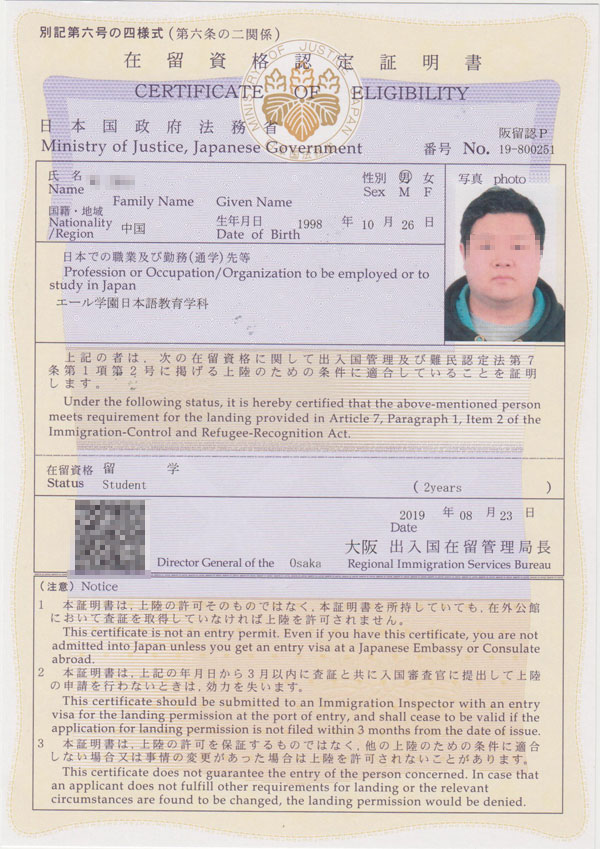 別記第六号の四様式（第六条の二関係）
在留資格認定証明書
CERTIFICATE OF ELIGIBILITY
MINISTRY OF JUSTICE, JAPAN
日本国政府法務省
Ministry of Justice, Japanese Government
阪留認P
番号 No. 19-800251
氏 名
Name
Family Name Given Name
性別 男 女
Sex M F
写真 photo
国籍・地域
Nationality
/Region 中国
生年月日 1998 年 10 月 26 日
Date of Birth
日本での職業及び勤務(通学)先等
Profession or Occupation/Organization to be employed or to
study in Japan
エール学園日本語教育学科
上記の者は，次の在留資格に関して出入国管理及び難民認定法第7
条第1項第2号に掲げる上陸のための条件に適合していることを証明
します。
Under the following status, it is hereby certified that the above-mentioned person
meets requirement for the landing provided in Article 7, Paragraph 1, Item 2 of the
Immigration-Control and Refugee-Recognition Act.
在留資格 留 学
Status Student
( 2years )
2019 年 08 月 23 日
Date
大阪 出入国在留管理局長
Director General of the Osaka Regional Immigration Services Bureau
（注意）Notice
1 本証明書は，上陸の許可そのものではなく，本証明書を所持していても，在外公館
において査証を取得していなければ上陸を許可されません。
This certificate is not an entry permit. Even if you have this certificate, you are not
admitted into Japan unless you get an entry visa at a Japanese Embassy or Consulate
abroad.
2 本証明書は，上記の年月日から3月以内に査証と共に入国審査官に提出して上陸
の申請を行わないときは，効力を失います。
This certificate should be submitted to an Immigration Inspector with an entry
visa for the landing permission at the port of entry, and shall cease to be valid if the
application for landing permission is not filed within 3 months from the date of issue.
3 本証明書は，上陸の許可を保証するものではなく，他の上陸のための条件に適合
しない場合又は事情の変更があった場合は上陸を許可されないことがあります。
This certificate does not guarantee the entry of the person concerned. In case that
an applicant does not fulfill other requirements for landing or the relevant
circumstances are found to be changed, the landing permission would be denied.